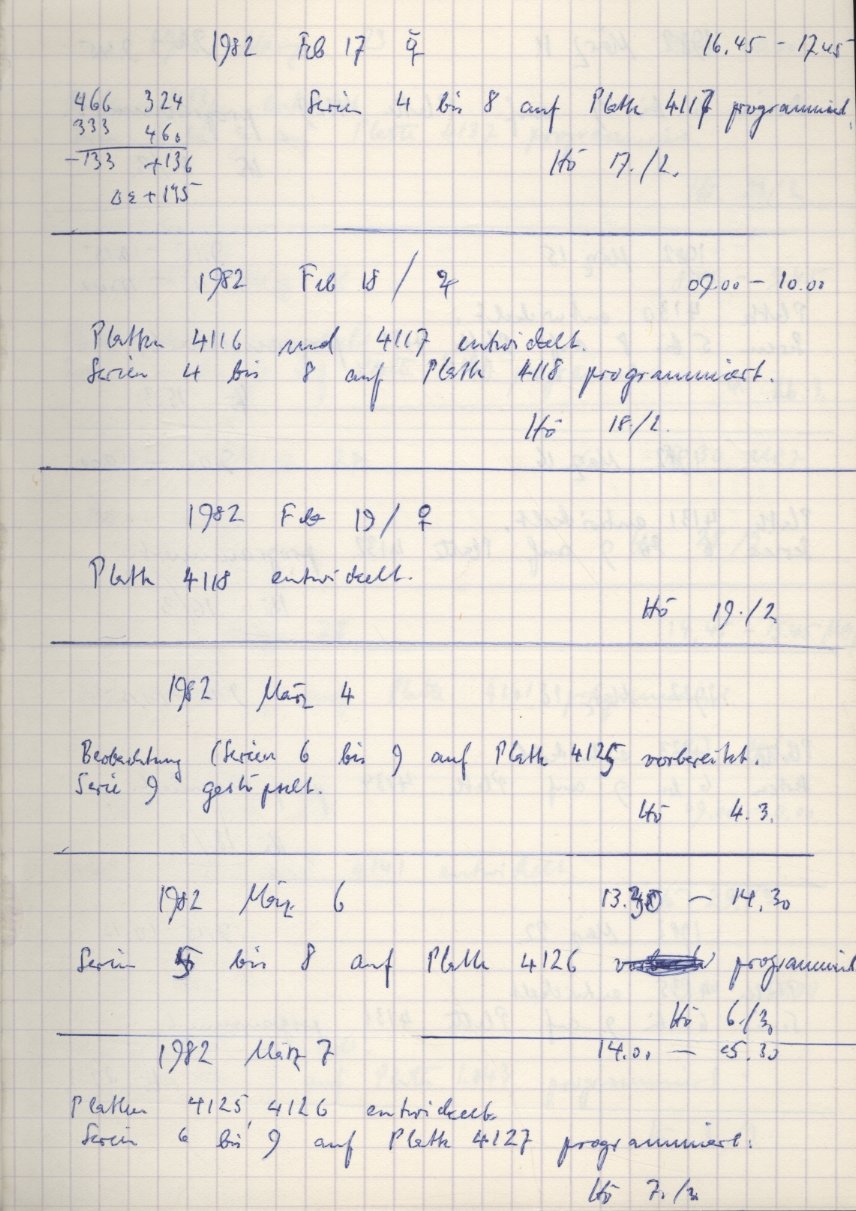 1982 Feb 17 ☿ 16.45 - 17.45
466 324 Serien 4 bis 8 auf Platte 4117 programmiert.
333 460
-133 +136 Hö 17./2.
Δε +195
1982 Feb 18 / ♃ 09.00 - 10.00
Platten 4116 und 4117 entwickelt.
Serien 4 bis 8 auf Platte 4118 programmiert.
Hö 18./2.
1982 Feb 19 / ♀
Platte 4118 entwickelt.
Hö 19./2.
1982 März 4
Beobachtung (Serien 6 bis 9 auf Platte 4125 vorbereitet.
Serie 9 gestöpselt.
Hö 4.3.
1982 März 6 13.30 — 14.30
Serien 5 bis 8 auf Platte 4126 programmiert
Hö 6./3.
1982 März 7 14.00 — 15.30
Platten 4125, 4126 entwickelt.
Serien 6 bis 9 auf Platte 4127 programmiert.
Hö 7./3.